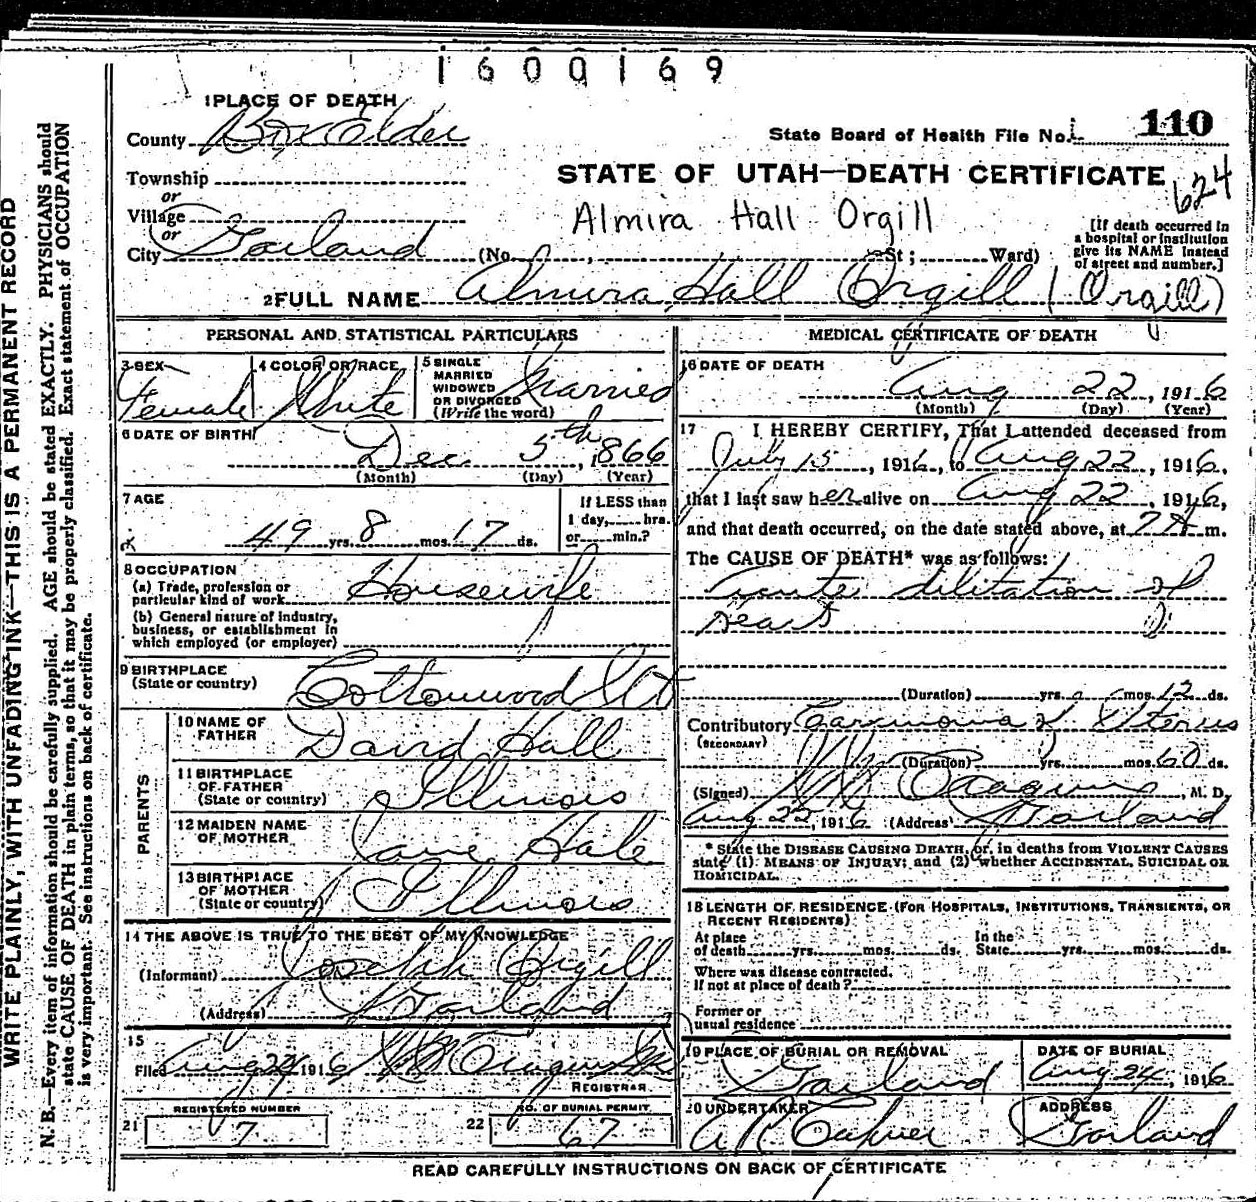 1600169
1 PLACE OF DEATH
County Box Elder
State Board of Health File No. 110
Township
or
Village
or
City Garland (No. , St; Ward)
STATE OF UTAH—DEATH CERTIFICATE
624
Almira Hall Orgill
[If death occurred in
a hospital or institution
give its NAME instead
of street and number.]
2 FULL NAME Almira Hall Orgill (Orgill)
PERSONAL AND STATISTICAL PARTICULARS
3 SEX
Female
4 COLOR OR RACE
White
5 SINGLE
MARRIED
WIDOWED
OR DIVORCED
(Write the word)
Married
6 DATE OF BIRTH
Dec 5th, 1866
(Month) (Day) (Year)
7 AGE
49 yrs. 8 mos. 17 ds.
If LESS than
1 day, hrs.
or min.?
8 OCCUPATION
(a) Trade, profession or
particular kind of work Housewife
(b) General nature of industry,
business, or establishment in
which employed (or employer)
9 BIRTHPLACE
(State or country) Cottonwood Ut
PARENTS
10 NAME OF
FATHER David Hall
11 BIRTHPLACE
OF FATHER
(State or country) Illinois
12 MAIDEN NAME
OF MOTHER Jane Hale
13 BIRTHPLACE
OF MOTHER
(State or country) Illinois
14 THE ABOVE IS TRUE TO THE BEST OF MY KNOWLEDGE
(Informant) Joseph Orgill
(Address) Garland
15
Filed Aug 22 1916
REGISTRAR
21 REGISTERED NUMBER
7
22 NO. OF BURIAL PERMIT
67
MEDICAL CERTIFICATE OF DEATH
16 DATE OF DEATH
Aug 22, 1916
(Month) (Day) (Year)
17 I HEREBY CERTIFY, That I attended deceased from
July 15, 1916, to Aug 22, 1916,
that I last saw her alive on Aug 22, 1916,
and that death occurred, on the date stated above, at 2 A m.
The CAUSE OF DEATH* was as follows:
Acute dilitation of
Heart
(Duration) yrs. mos. 12 ds.
Contributory Carcinoma of Uterus
(SECONDARY)
(Duration) yrs. mos. 60 ds.
(Signed) M. D.
Aug 22, 1916 (Address) Garland
* State the DISEASE CAUSING DEATH, or, in deaths from VIOLENT CAUSES
state (1) MEANS OF INJURY; and (2) whether ACCIDENTAL, SUICIDAL OR
HOMICIDAL.
18 LENGTH OF RESIDENCE (FOR HOSPITALS, INSTITUTIONS, TRANSIENTS, OR
RECENT RESIDENTS)
At place
of death yrs. mos. ds.
In the
State yrs. mos. ds.
Where was disease contracted,
If not at place of death?
Former or
usual residence
19 PLACE OF BURIAL OR REMOVAL
Garland
DATE OF BURIAL
Aug 24, 1916
20 UNDERTAKER
A R
ADDRESS
Garland
READ CAREFULLY INSTRUCTIONS ON BACK OF CERTIFICATE
WRITE PLAINLY, WITH UNFADING INK—THIS IS A PERMANENT RECORD
N. B.—Every item of information should be carefully supplied. AGE should be stated EXACTLY. PHYSICIANS should
state CAUSE OF DEATH in plain terms, so that it may be properly classified. Exact statement of OCCUPATION
is very important. See instructions on back of certificate.